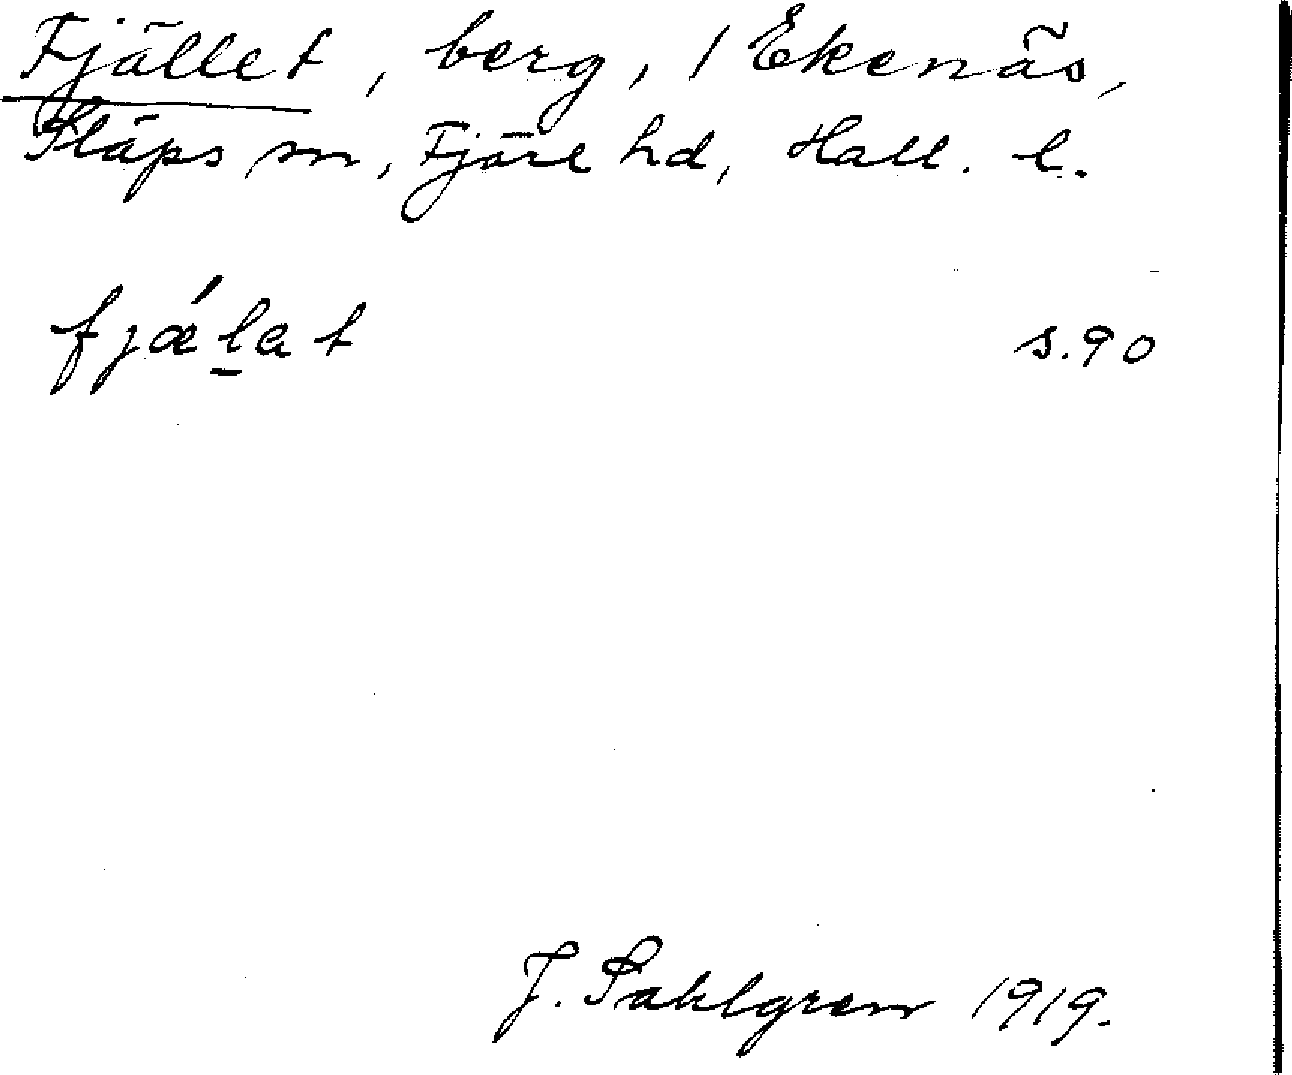 Fjället, berg, / Ekenäs,
Släps sn, Fjäre hd, Hall. l.
fjǽl̠at s. 90
J. Sahlgren 1919.